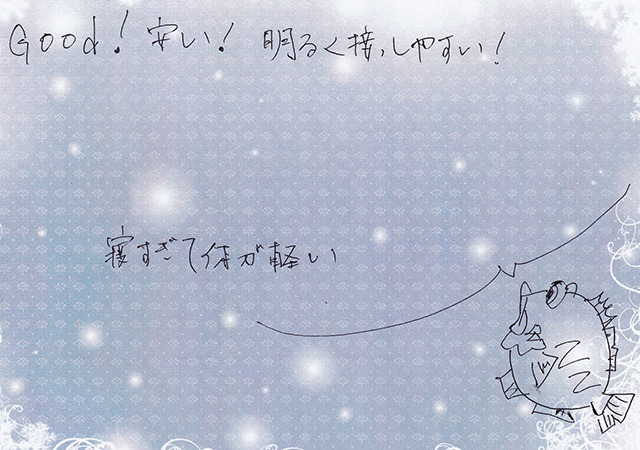 Good! 安い! 明るく接しやすい!
寝すぎて体が軽い